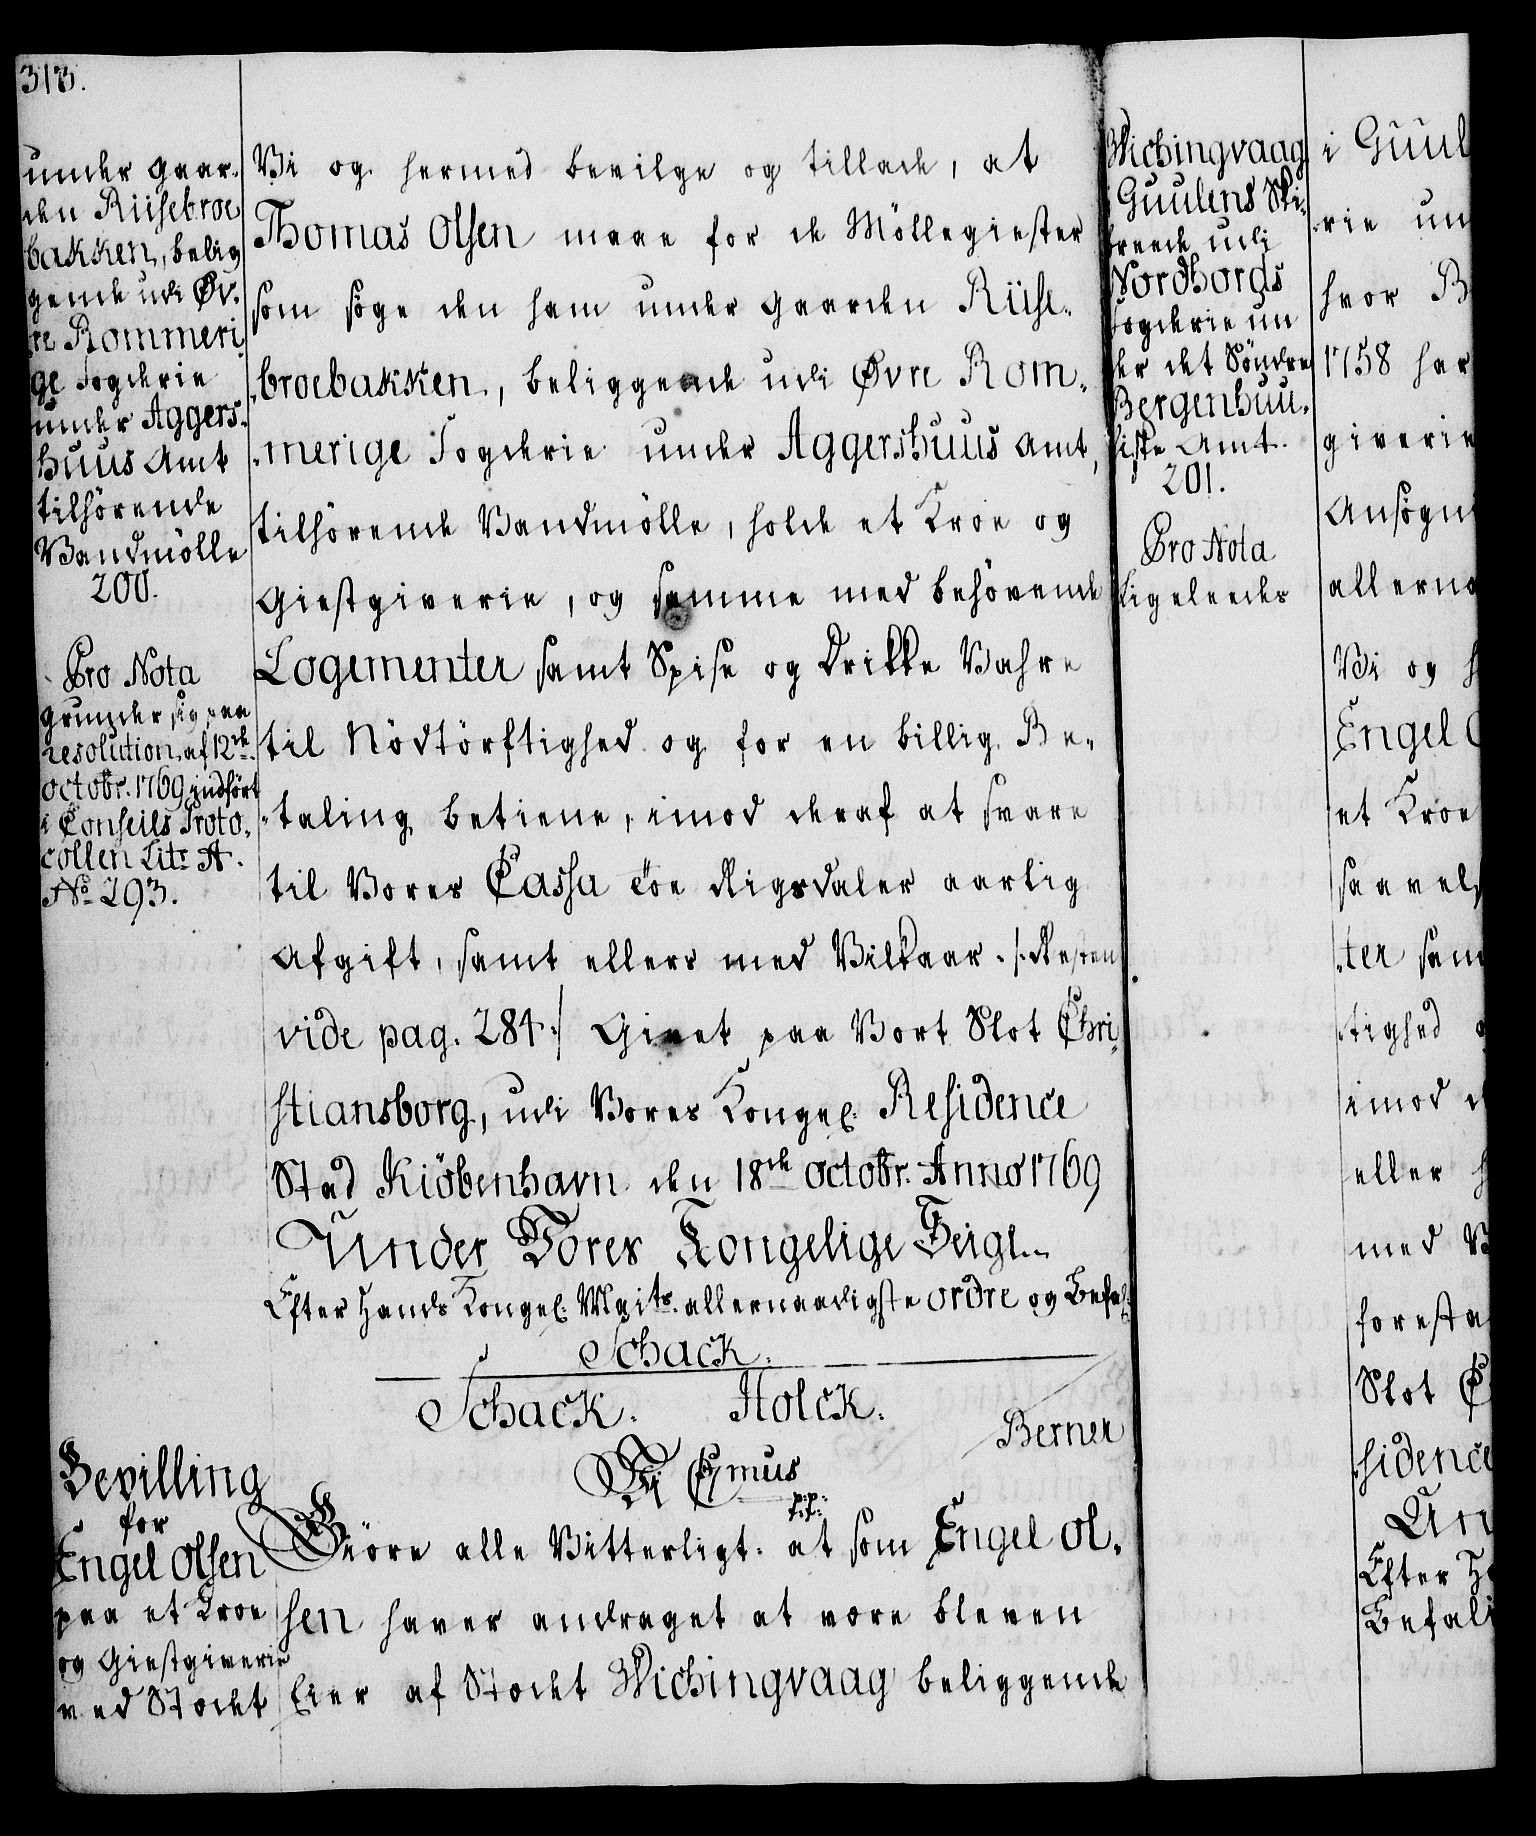 313.
under Gaar-
den Riisebroe
bakken, belig
gende udi Øv.
re Rommeri
ge Fogderie
under Aggers.
huus Amt
tilhörende
Vandmölle
200.
Pro Nota
grunder sig paa
resolution af 12te
octobr. 1769 indfört
i Conseils Proto,
collen Litr A.
No 293.
Vi og hermed bevilge og tillade, at
Thomas Olsen maae for de Möllegiester
som söge den ham under Gaarden Riise,
broebakken, beliggende udi Øvre Rom,
merige Fogderie under Aggershuus Amt,
tilhörende Vandmölle, holde et Kroe og
Giestgiverie, og samme med behövende
Logementer samt Spise og Drikke Vahre
til Nödtörftighed og for en billig Be,
taling betiene, imod deraf at svare
til Vores Cassa Toe Rigsdaler aarlig
Afgift, samt ellers med Vilkaar. /: Resten
vide pag. 284 :/ Givet paa Vort Slot Chri,
stiansborg, udi Vores Kongel: Residence
Stad Kiöbenhavn den 18de octobr. Anno 1769
Under Vores Kongelige Seigl..
Efter Hands Kongel: Maits. allernaadigste ordre og Befal:
Schack.
Schack. Holck.
Berner
Bevilling
for
Engel Olsen
paa et Kroe
og Giestgiverie
ved Stædet
Vi C 7mus
p:p:
t:t:
Giöre alle Vitterligt. at som Engel Ol,
sen haver andraget at være bleven
Eier af Stædet Wichingvaag beliggende
Wichingvaag
Guulens Ski,
breede udi
Nordhords
Fogderie un
der det Söndre
Bergenhuu,
siste Amt.
201.
Pro Nota
Ligeleedes
i Guul
rie un
hvor B
1758 har
giverie
Ansögni
allerna
Vi og h
Engel O
et Kroe
saavel
ter sam
tighed o
imod d
eller h
med V
foresta
Slot C
sidence
Un
Efter Ha
Befali